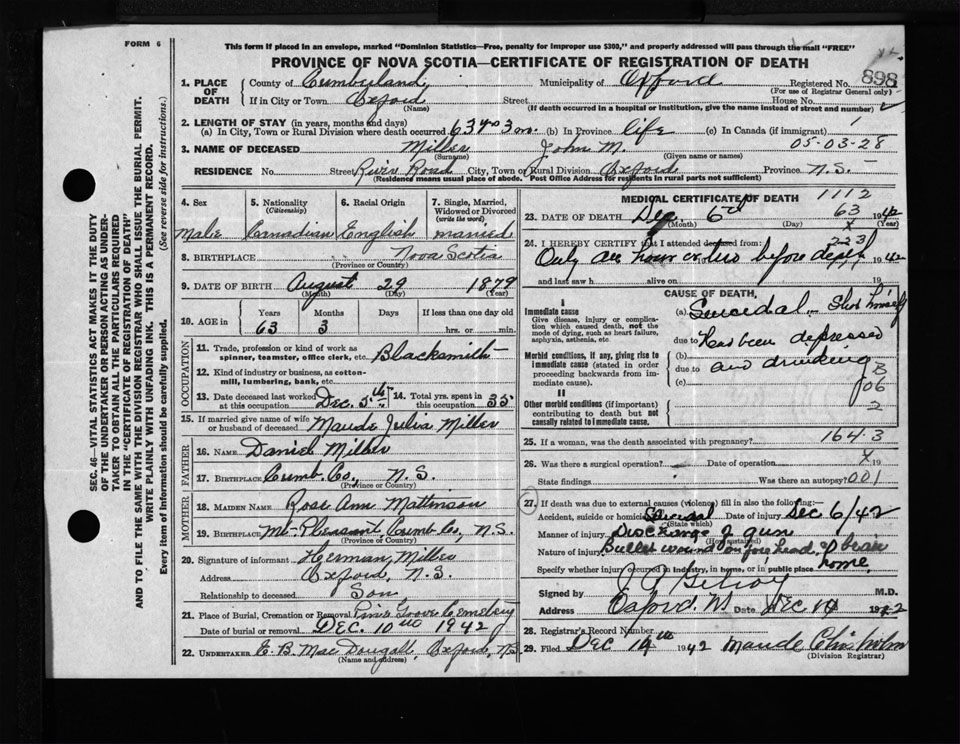 FORM 6
This form if placed in an envelope, marked "Dominion Statistics—Free, penalty for improper use $300," and properly addressed will pass through the mail "FREE"
PROVINCE OF NOVA SCOTIA—CERTIFICATE OF REGISTRATION OF DEATH
898
1. PLACE OF DEATH
County of Cumberland Municipality of Oxford Registered No.
(For use of Registrar General only)
If in City or Town Oxford Street House No.
(Name) (If death occurred in a hospital or institution, give the name instead of street and number)
2. LENGTH OF STAY (in years, months and days)
(a) In City, Town or Rural Division where death occurred 63 y 03 m. (b) In Province life (c) In Canada (if immigrant)
3. NAME OF DECEASED Miller John M. 05-03-28
(Surname) (Given name or names)
RESIDENCE No. Street River Road City, Town or Rural Division Oxford Province N.S.
(Residence means usual place of abode. Post Office Address for residents in rural parts not sufficient)
4. Sex 5. Nationality (Citizenship) 6. Racial Origin 7. Single, Married, Widowed or Divorced (write the word)
Male Canadian English married
8. BIRTHPLACE Nova Scotia
(Province or Country)
9. DATE OF BIRTH August 29 1879
(Month) (Day) (Year)
10. AGE in Years Months Days If less than one day old
63 3 hrs. or min.
OCCUPATION
11. Trade, profession or kind of work as spinner, teamster, office clerk, etc. Blacksmith
12. Kind of industry or business, as cotton-mill, lumbering, bank, etc.
13. Date deceased last worked at this occupation Dec. 5th 14. Total yrs. spent in this occupation 35
15. If married give name of wife or husband of deceased Maude Julia Miller
FATHER
16. NAME Daniel Miller
17. BIRTHPLACE Cumb. Co., N.S.
(Province or Country)
MOTHER
18. MAIDEN NAME Rose Ann Mattinson
19. BIRTHPLACE Mt. Pleasant, Cumb. Co., N.S.
(Province or Country)
20. Signature of informant Herman Miller
Address Oxford, N.S.
Relationship to deceased Son
21. Place of Burial, Cremation or Removal Pine Grove Cemetery
Date of burial or removal DEC. 10th 1942
22. UNDERTAKER E. B. MacDougall, Oxford, N.S.
(Name and address)
MEDICAL CERTIFICATE OF DEATH
1112
63
23. DATE OF DEATH Dec. 6th 1942
(Month) (Day) (Year)
223
24. I HEREBY CERTIFY that I attended deceased from:
Only an hour or two before death 1942
and last saw h alive on 19
CAUSE OF DEATH
I
Immediate cause
Give disease, injury or complication which caused death, not the mode of dying, such as heart failure, asphyxia, asthenia, etc.
(a) Suicidal - Shot himself
due to Has been depressed
Morbid conditions, if any, giving rise to immediate cause (stated in order proceeding backwards from immediate cause).
(b) and drinking
due to
(c)
B
106
2
II
Other morbid conditions (if important) contributing to death but not causally related to immediate cause.
25. If a woman, was the death associated with pregnancy? 164.3
26. Was there a surgical operation? Date of operation X 19
State findings Was there an autopsy? 001
27. If death was due to external causes (violence) fill in also the following:—
Accident, suicide or homicide Suicidal Date of injury Dec 6/42
(State which)
Manner of injury Discharge of gun
(How sustained)
Nature of injury Bullet wound on forehead & brain
Specify whether injury occurred in industry, in home, or in public place home
Signed by M.D.
Address Oxford. NS Date Dec 1942
28. Registrar's Record Number
29. Filed Dec 14th 1942 Maude Chisholm
(Division Registrar)
SEC. 46—VITAL STATISTICS ACT MAKES IT THE DUTY
OF THE UNDERTAKER OR PERSON ACTING AS UNDER-
TAKER TO OBTAIN ALL THE PARTICULARS REQUIRED
IN THE "CERTIFICATE OF REGISTRATION OF DEATH"
AND TO FILE THE SAME WITH THE DIVISION REGISTRAR WHO SHALL ISSUE THE BURIAL PERMIT.
WRITE PLAINLY WITH UNFADING INK. THIS IS A PERMANENT RECORD.
Every item of information should be carefully supplied. (See reverse side for instructions).